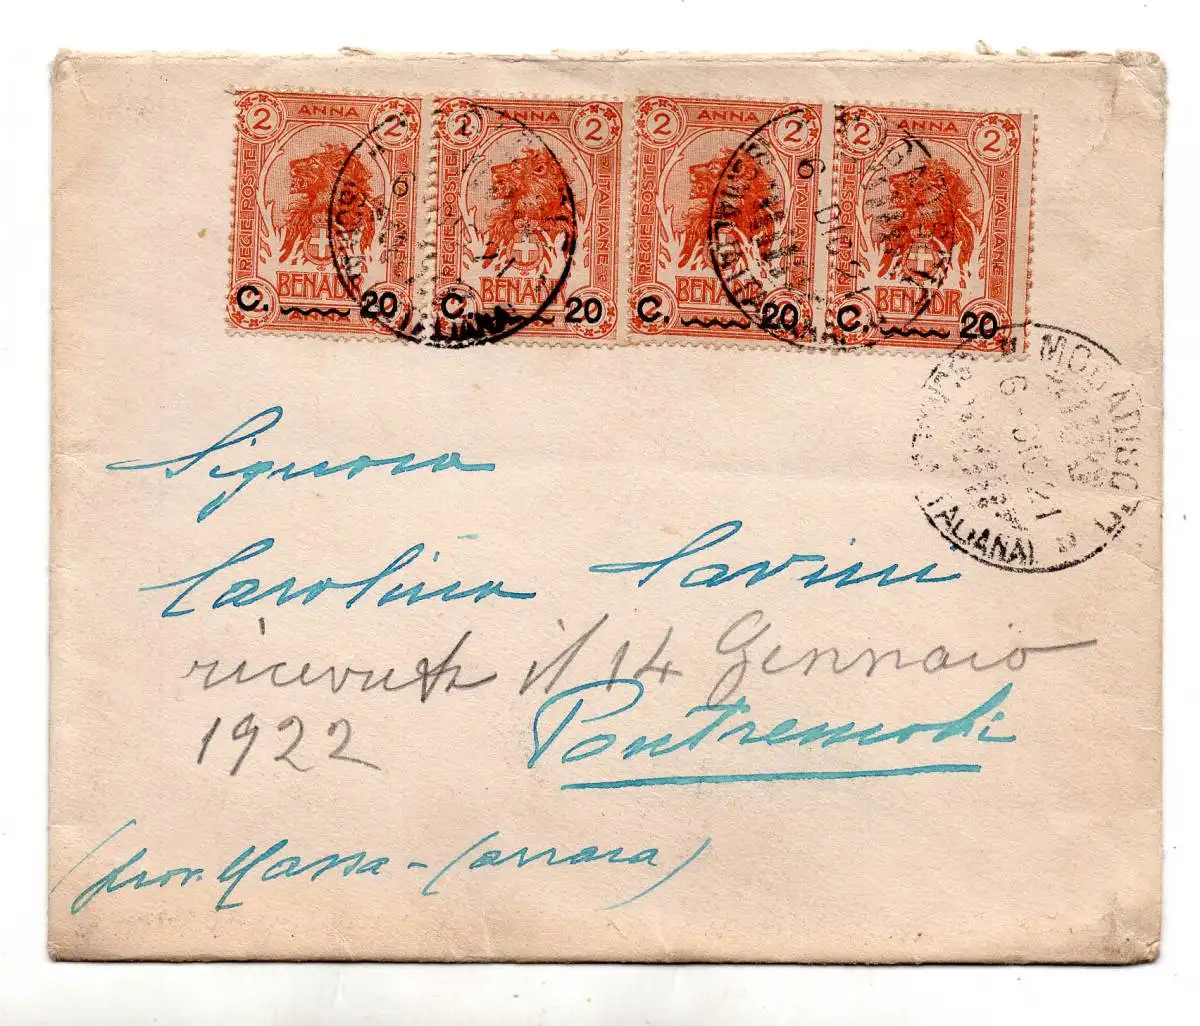 2 ANNA 2 2 ANNA 2 2 ANNA 2 2 ANNA 2
REGIE POSTE ITALIANE REGIE POSTE REGIE POSTE ITALIANE REGIE POSTE ITALIANE
BENADIR BENADIR BENADIR BENADIR
C. 20 C. 20 C. 20 C. 20
6 DIC 21
ITALIANA
MOGADISCIO
6 DIC 21
ITALIANA
Signora
Carolina Savini
ricevuta il 14 Gennaio
1922
Pontremoli
(prov. Massa - Carrara)